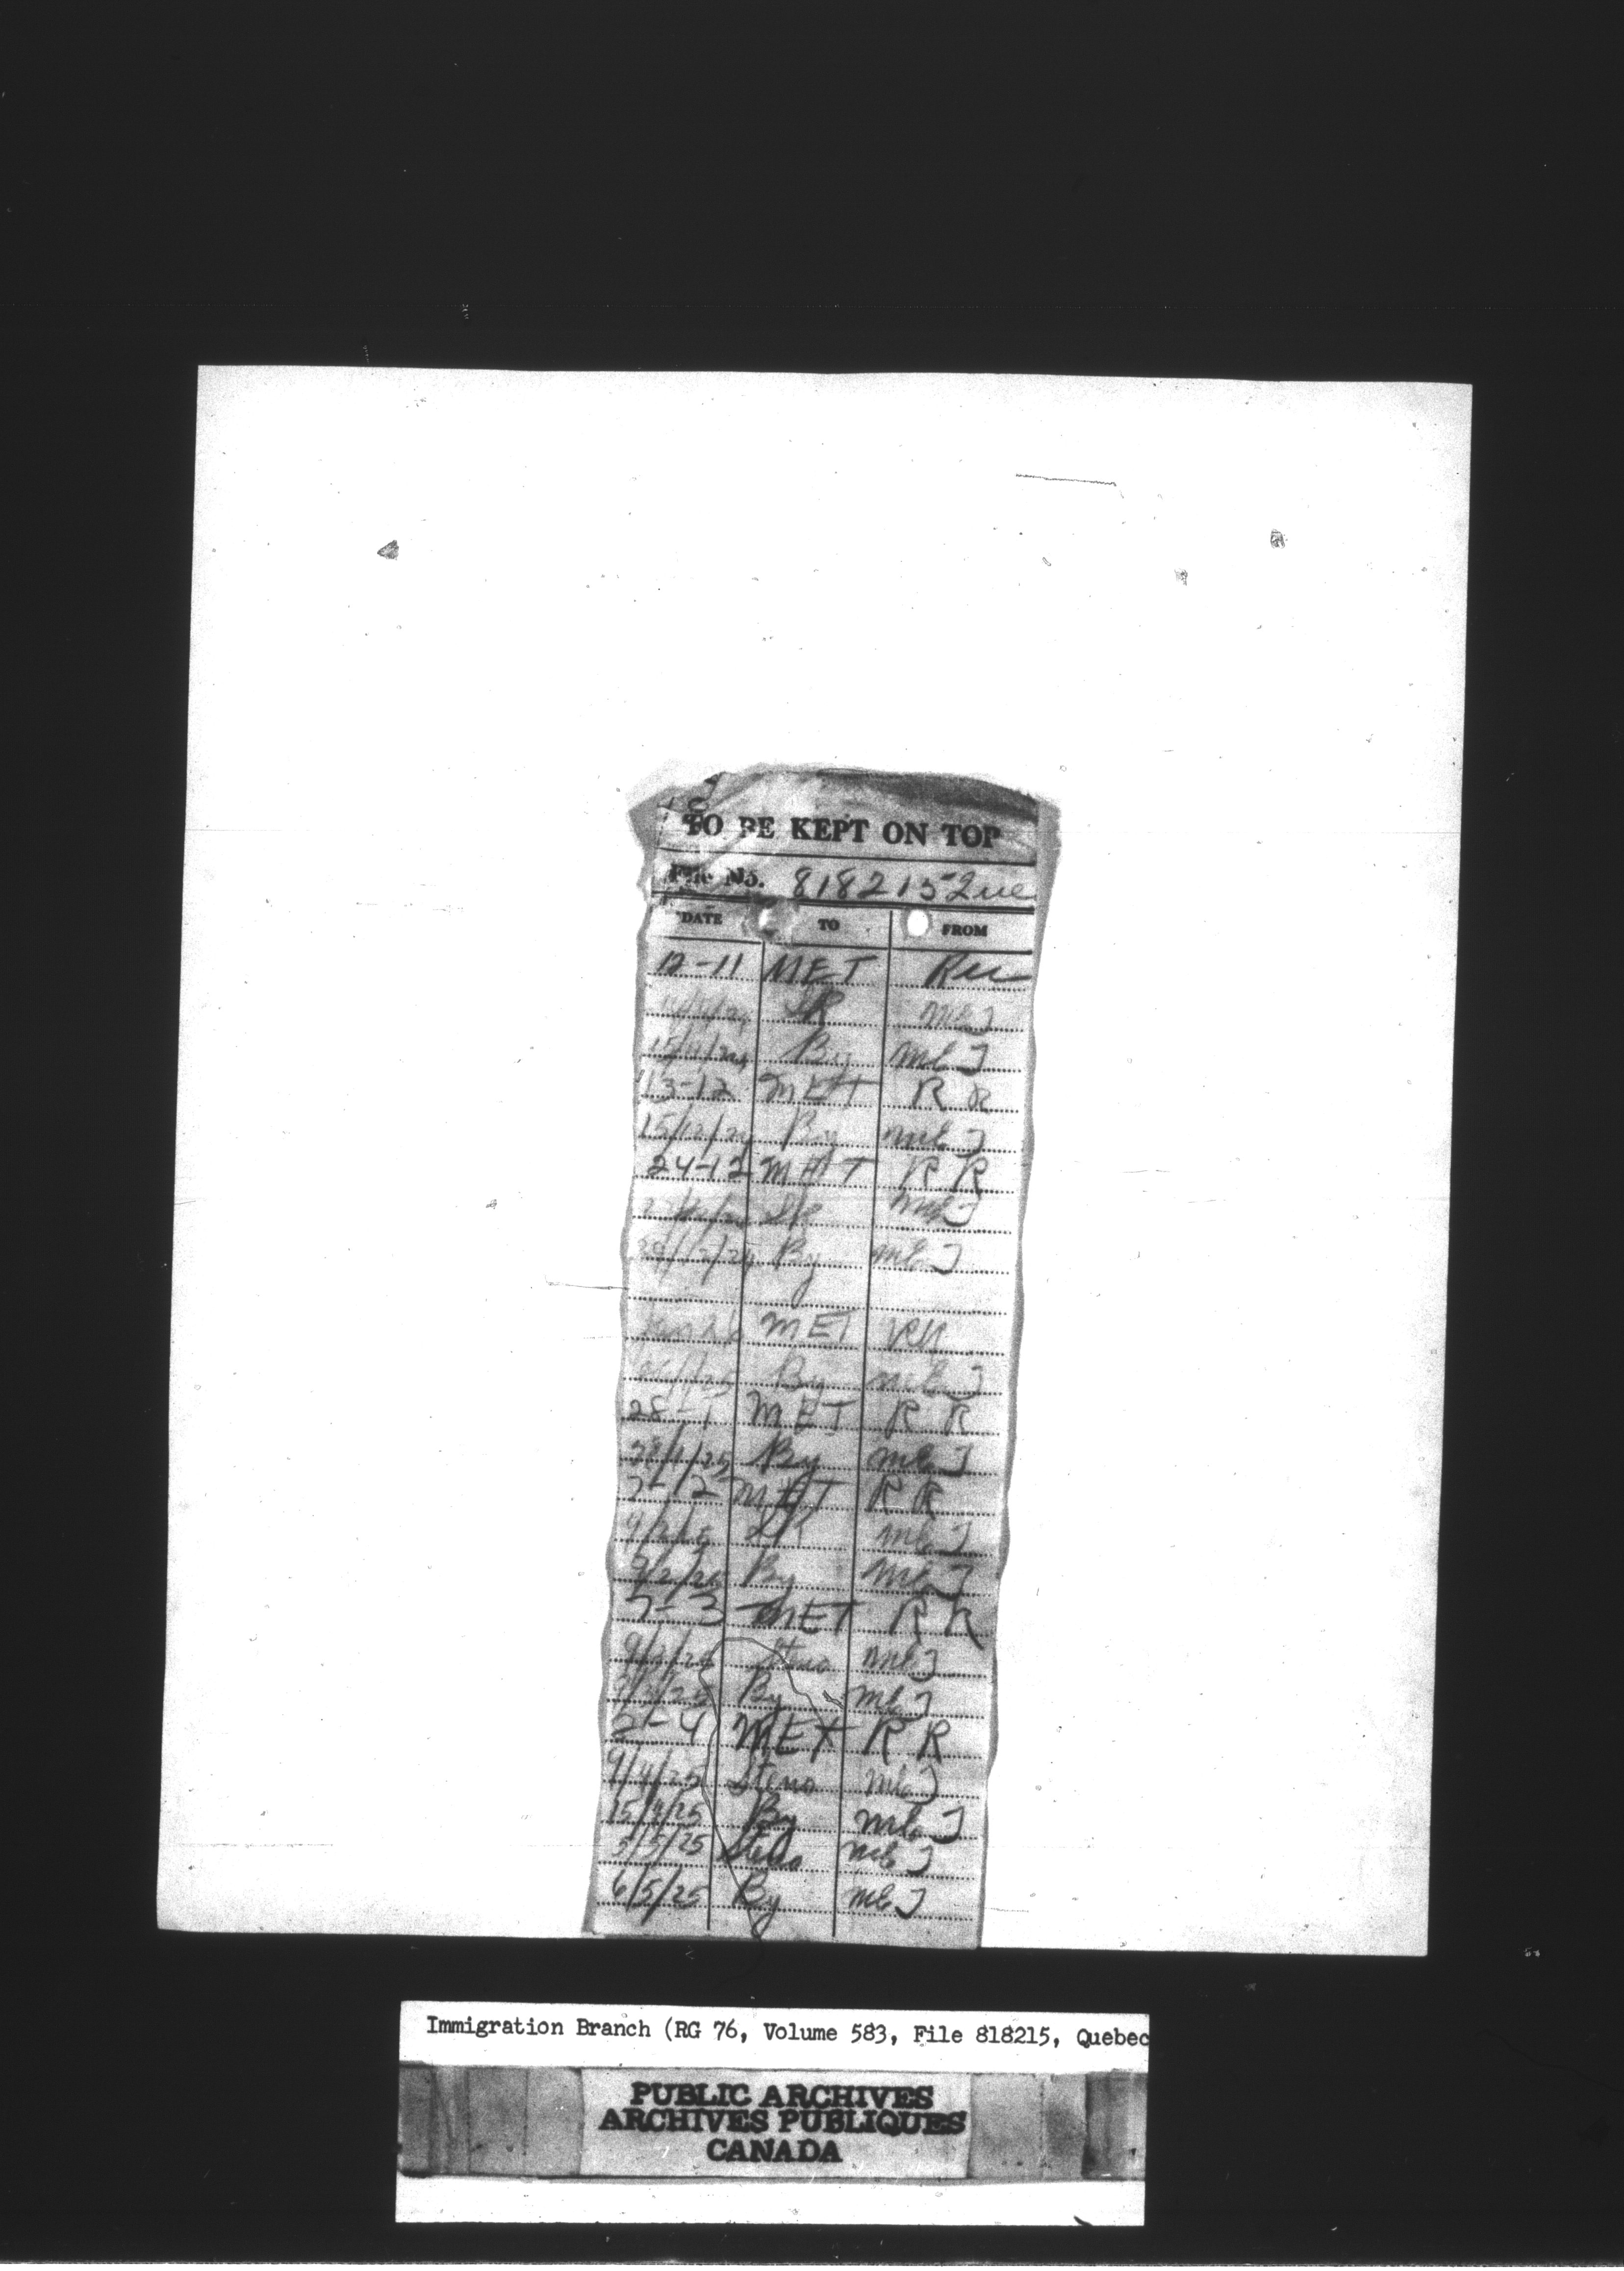 TO BE KEPT ON TOP
File No. 818215 Que
DATE TO FROM
12-11 MET
SR MET
15/11/24 By MET
13-12 MET R R
15/12/24 By MET
24-12 MET R R
SR MET
29/12/24 By MET
MET
By MET
28-1 MET R R
28/1/25 By MET
7-12 MET R R
9/2/25 SR MET
9/2/25 By MET
7-3 MET R R
9/3/25 Steno MET
By MET
2-4 MET R R
9/4/25 Steno MET
15/4/25 By MET
5/5/25 Steno MET
6/5/25 By MET
Immigration Branch (RG 76, Volume 583, File 818215, Quebec
PUBLIC ARCHIVES
ARCHIVES PUBLIQUES
CANADA